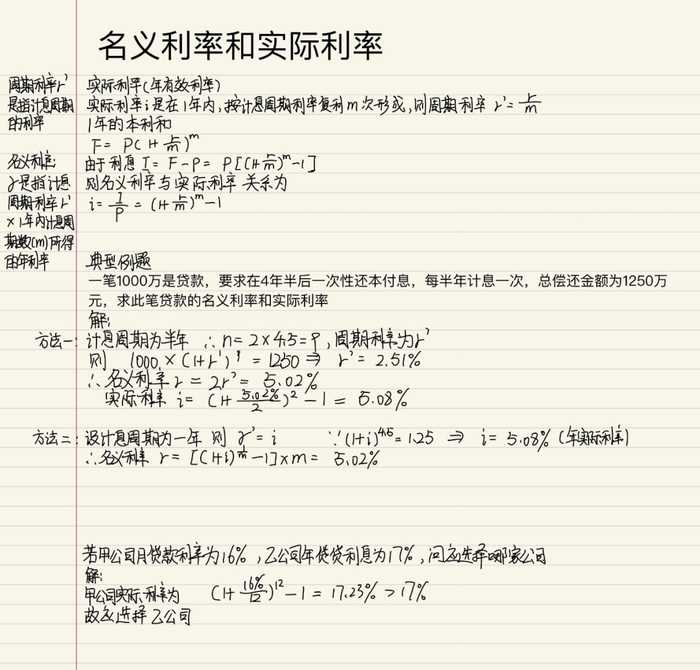 名义利率和实际利率
周期利率r'
是指计息周期
的利率
名义利率:
r是指计息
周期利率r'
×1年内计息周
期数(m)所得
的年利率
实际利率(年有效利率)
实际利率i是在1年内,按计息周期利率复利m次形成,则周期利率 r'=r/m
1年的本利和
F= P(1+r/m)^m
由于利息 I= F-P= P[(1+r/m)^m-1]
则名义利率与实际利率关系为
i= I/P = (1+r/m)^m-1
典型例题
一笔1000万是贷款，要求在4年半后一次性还本付息，每半年计息一次，总偿还金额为1250万
元，求此笔贷款的名义利率和实际利率
解:
方法一: 计息周期为半年 ∴ n=2×4.5=9, 周期利率为r'
则 1000×(1+r')^9 =1250 ⇒ r'=2.51%
∴名义利率 r = 2r' = 5.02%
实际利率 i= (1+5.02%/2)^2 -1 = 5.08%
方法二: 设计息周期为一年 则 r'=i ∵(1+i)^4.5=1.25 ⇒ i= 5.08% (年实际利率)
∴名义利率 r= [(1+i)^1/m -1]×m= 5.02%
若甲公司月贷款利率为16%, 乙公司年贷利息为17%, 问应选择哪家公司
解:
甲公司实际利率为 (1+16%/12)^12-1=17.23%>17%
故应选择乙公司